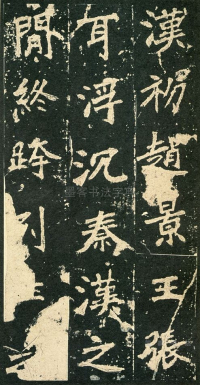 漢初趙景王張
耳浮沉秦漢之
間終跨列